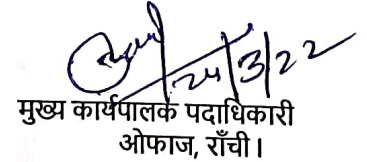 24/3/22
मुख्य कार्यपालक पदाधिकारी
ओफाज, राँची।